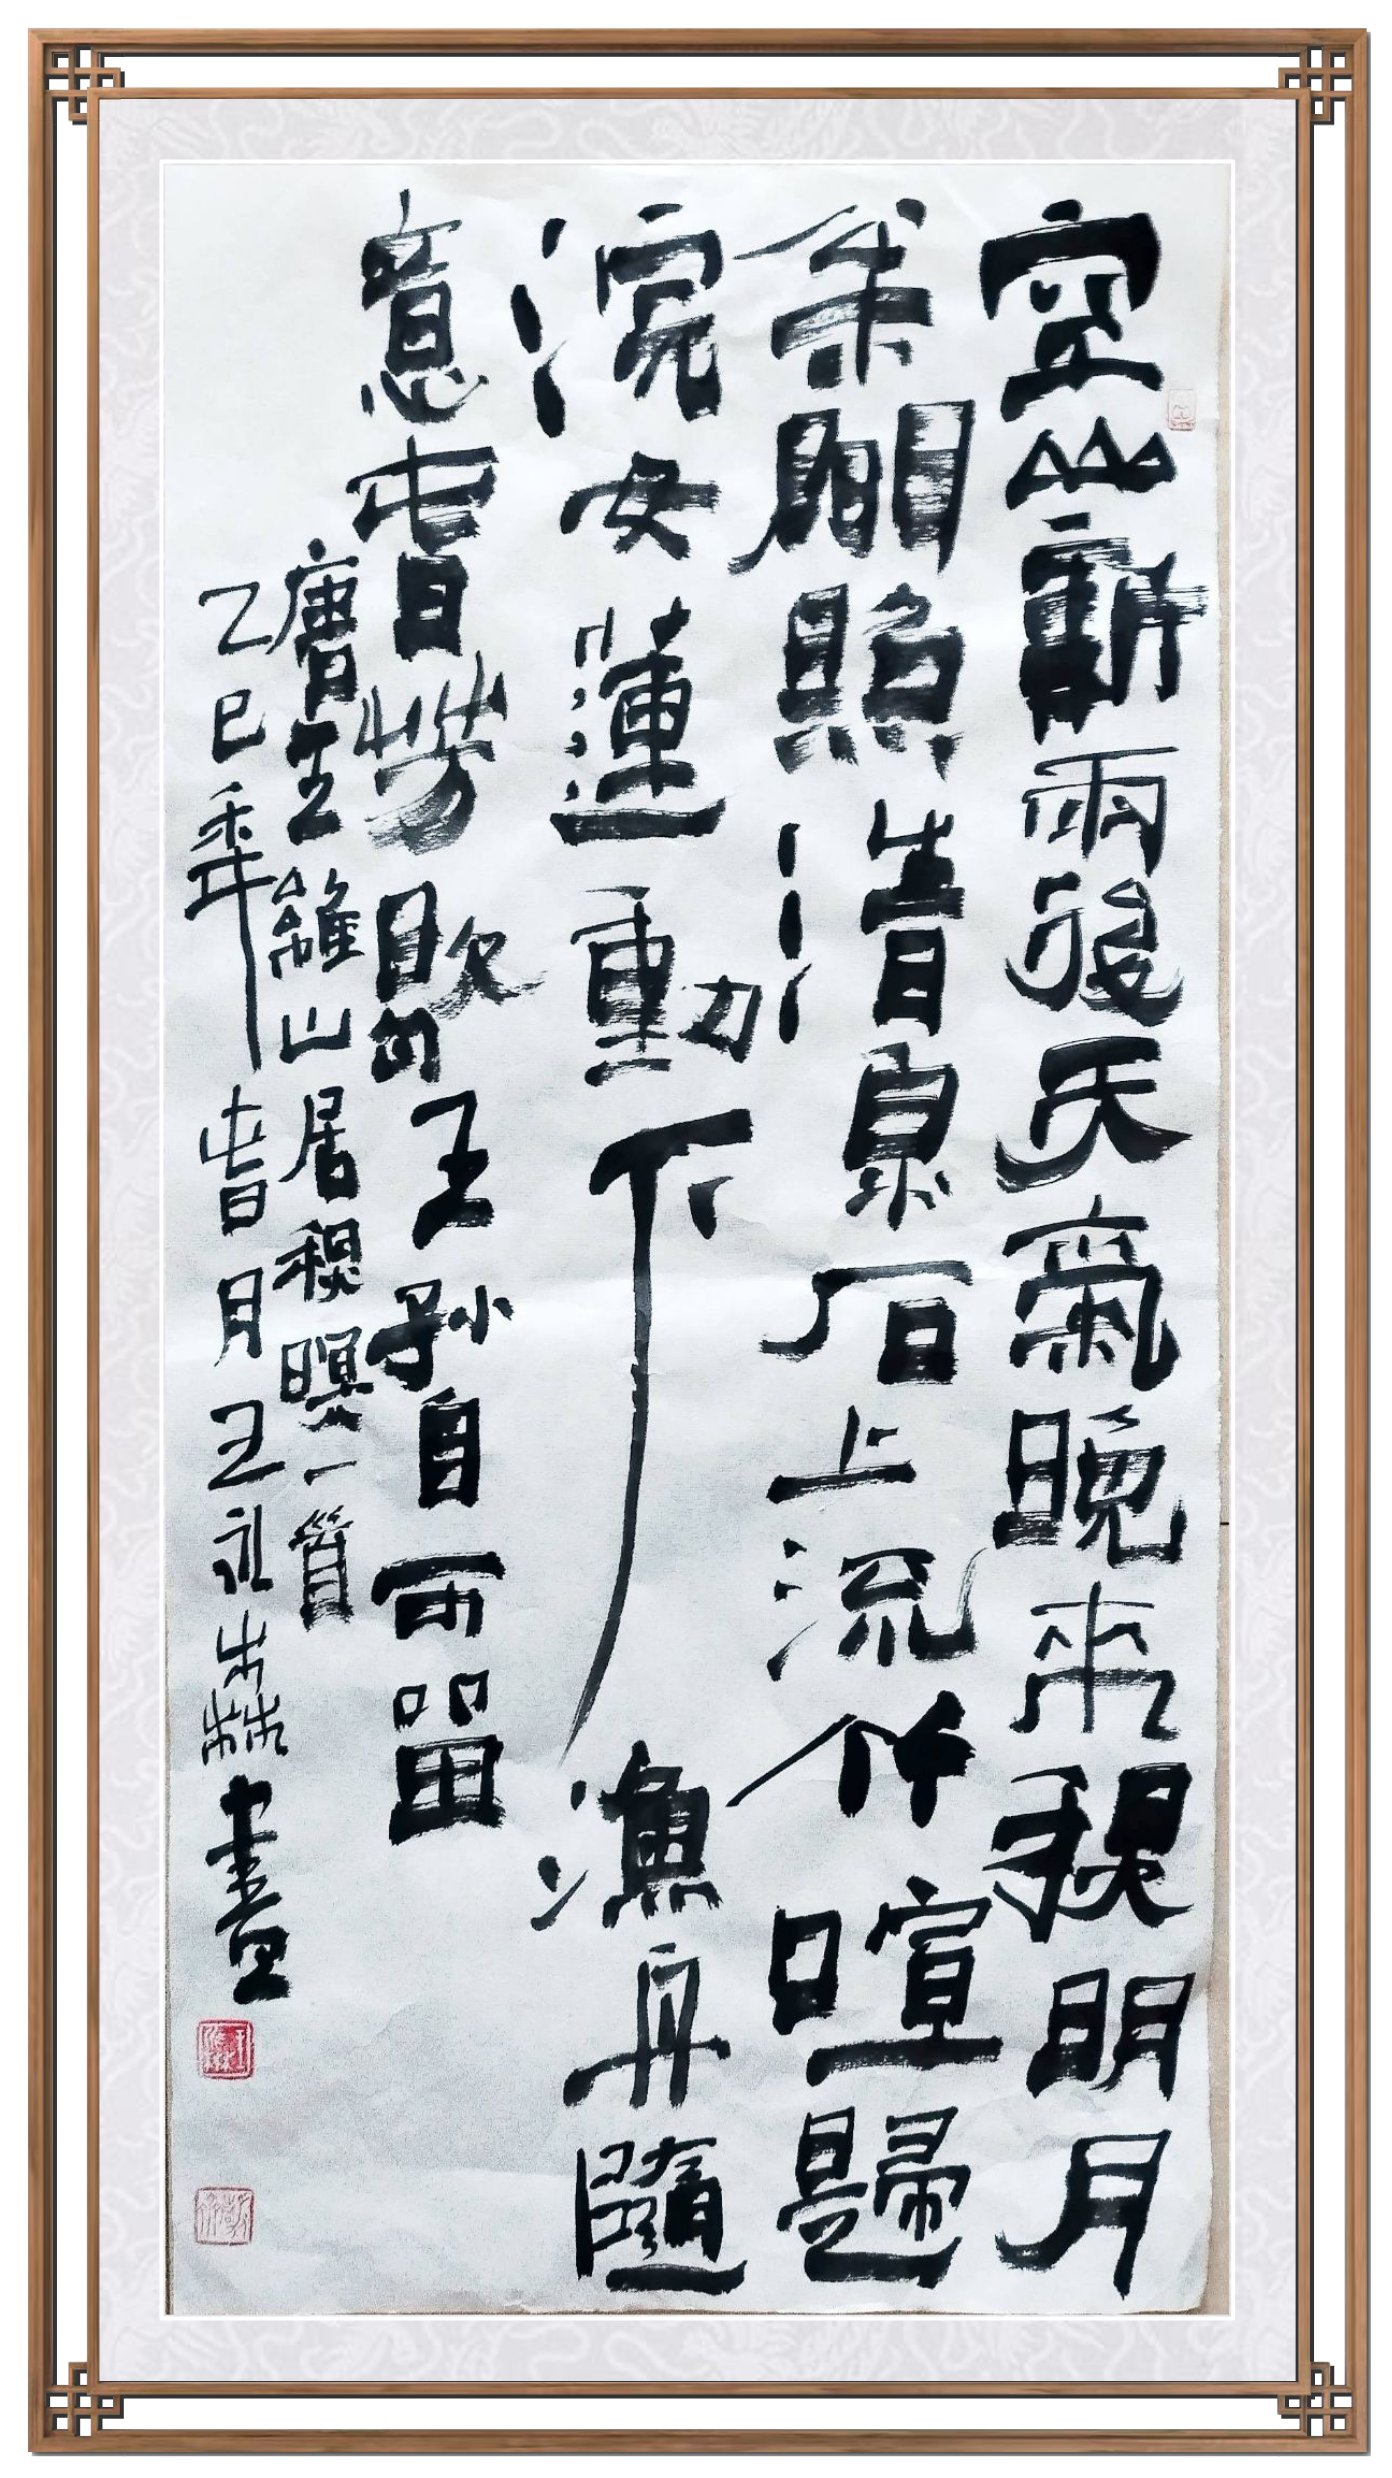 空山新雨後天氣晚來秋明月
松間照清泉石上流竹喧歸
浣女蓮動下漁舟隨
意春芳歇王孫自可留
唐王維山居秋暝一首
乙巳年春月王森書